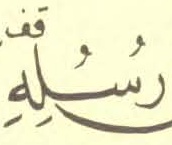 قف
رُسُلِهِ